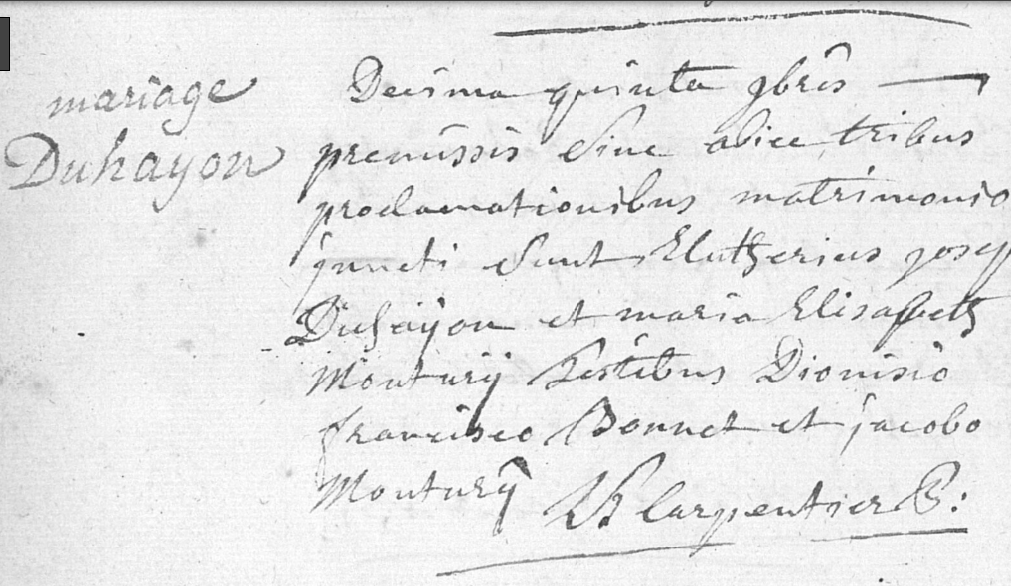 mariage
Duhayon
Decima quinta 9bris
premissis sine obice tribus
proclamationibus matrimonio
juncti sunt Elutherius josep
Duhayon et maria Elisabeth
Montury testibus Dionisio
francisco Bonnet et jacobo
Montury
Carpentier